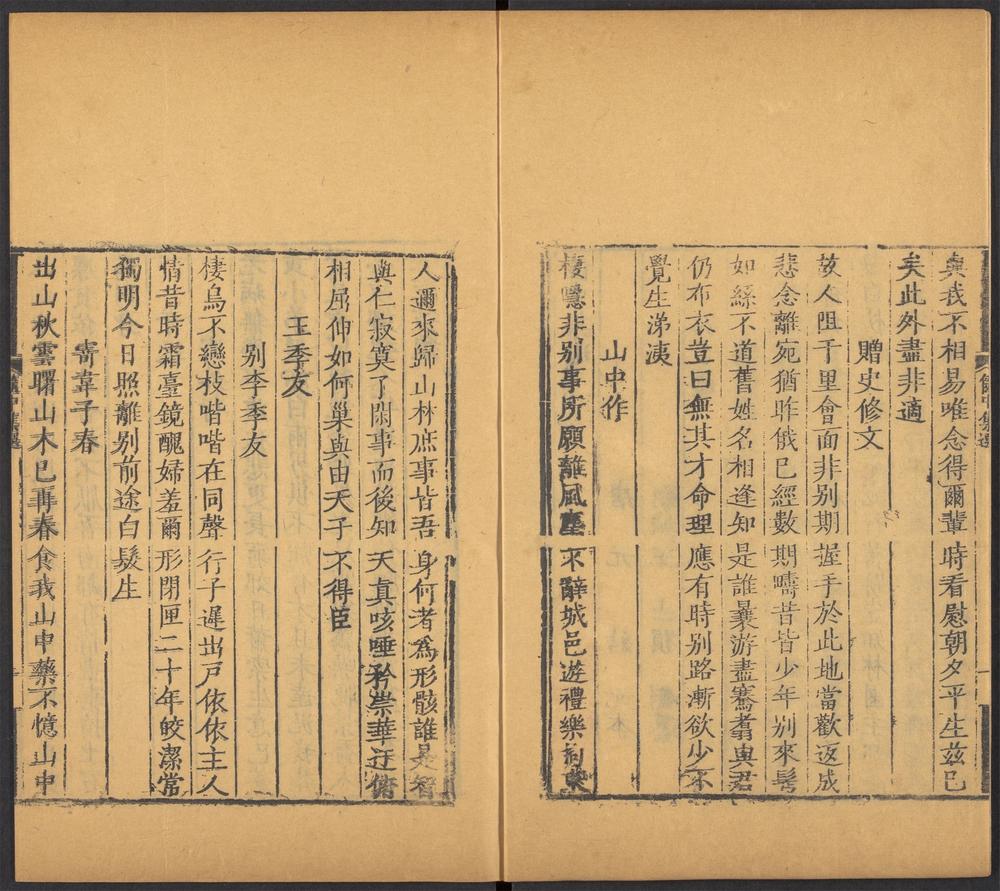 與我不相易唯念得爾輩時看慰朝夕平生茲已
矣此外盡非適
贈史修文
故人阻千里會面非別期握手於此地當歡返成
悲念離宛猶昨俄已經數期疇昔皆少年別來鬢
如絲不道舊姓名相逢知是誰曩游盡騫翥與君
仍布衣豈曰無其才命理應有時別路漸欲少不
覺生涕洟
山中作
棲隱非別事所願離風塵不辭城邑遊禮樂拘束
篋中集選
人邇來歸山林庶事皆吾身何者爲形骸誰是智
與仁寂寞了閑事而後知天真咳唾矜崇華迂俯
相屈伸如何巢與由天子不得臣
王季友
別李季友
棲烏不戀枝喈喈在同聲行子遲出戸依依主人
情昔時霜臺鏡醜婦羞爾形閉匣二十年皎潔常
獨明今日照離別前途白髮生
寄韋子春
出山秋雲曙山木已再春食我山中藥不憶山中
篋中集選